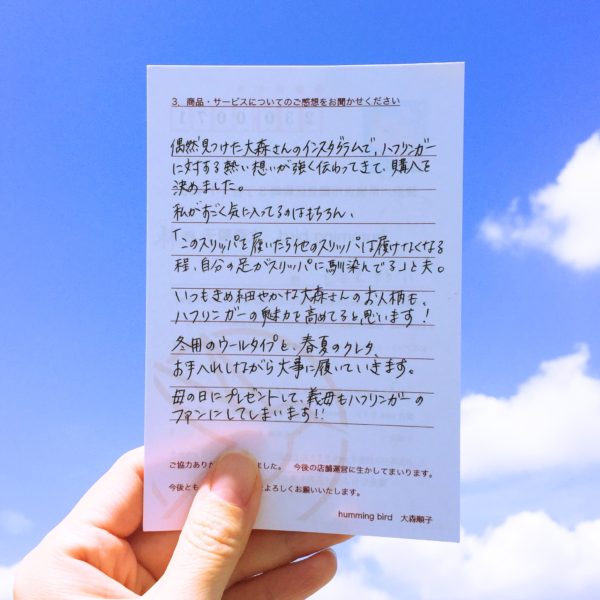 3、商品・サービスについてのご感想をお聞かせください
偶然見つけた大森さんのインスタグラムで、ハフリンガー
に対する熱い想いが強く伝わってきて、購入を
決めました。
私がすごく気に入ってるのはもちろん、
「このスリッパを履いたら他のスリッパは履けなくなる
程、自分の足がスリッパに馴染んでる」と夫。
いつもきめ細やかな大森さんのお人柄も、
ハフリンガーの魅力を高めてると思います！
冬用のウールタイプと、春夏のクレタ、
お手入れしながら大事に履いていきます。
母の日にプレゼントして、義母もハフリンガーの
ファンにしてしまいます！！
ご協力あり ました。 今後の店舗運営に生かしてまいります。
今後とも よろしくお願いいたします。
humming bird 大森順子